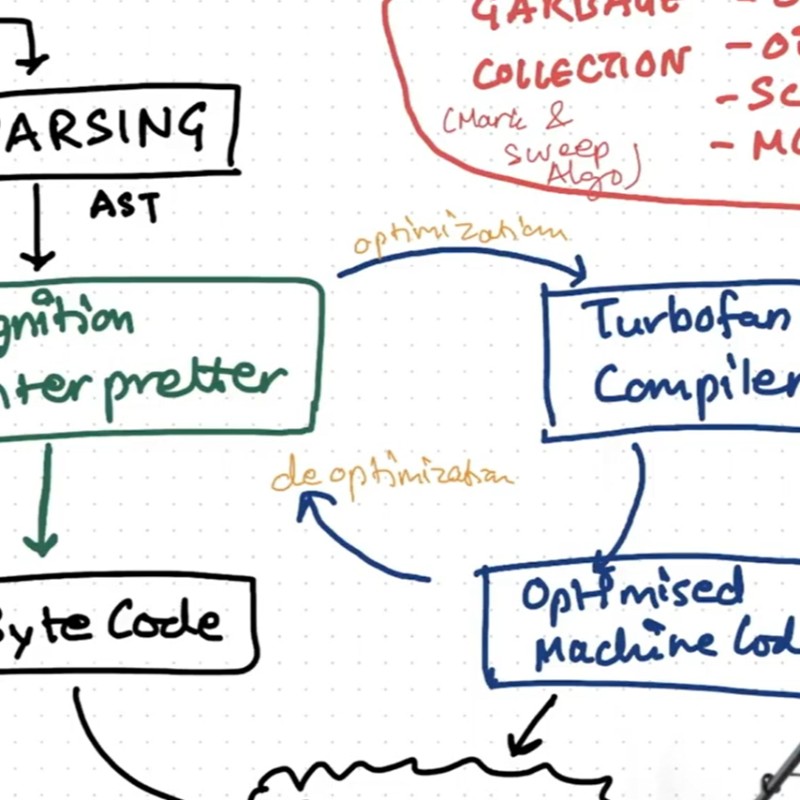 GARBAGE
COLLECTION
(Mark &
sweep
Algo)
- SC
- MO
ARSING
AST
optimization
gnition
nterpretter
Turbofan
Compiler
deoptimization
Byte Code
Optimised
Machine Cod